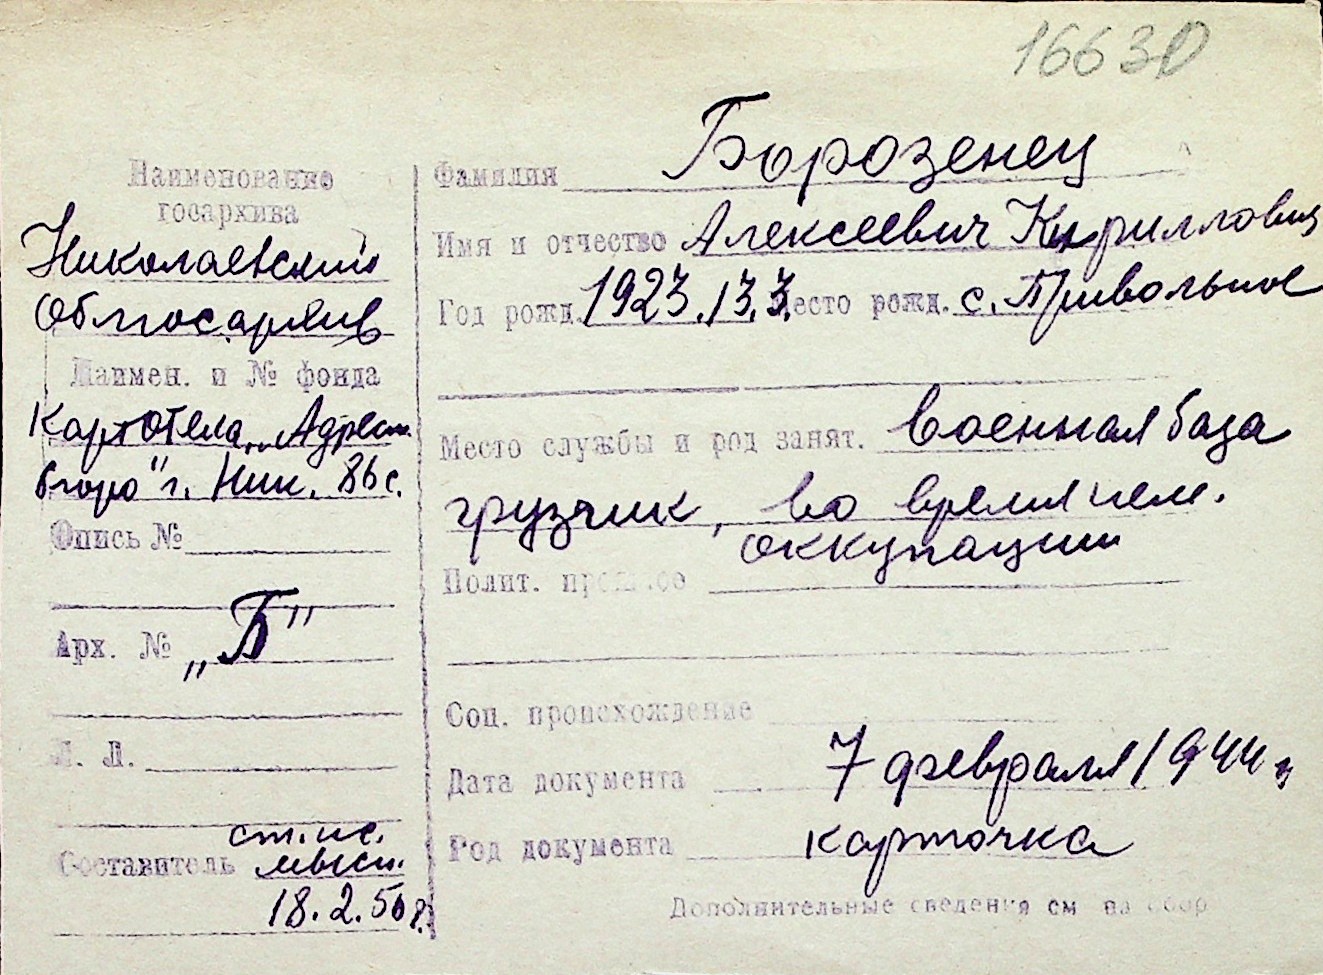 16630
Наименование
госархива
Николаевский
Облгосархив
Наимен. и № фонда
Картотека „Адресн.
бюро" г. Ник. 86 с.
Опись №
Арх. № „Б"
Л. Л.
Составитель ст. нс.
18.2.50 г.
Фамилия Борозенец
Имя и отчество Алексеевич Кириллович
Год рожд. 1923.13.3. Место рожд. с. Привольное
Место службы и род занят. военная база
грузчик, во время нем.
оккупации
Полит. прошлое
Соц. происхождение
Дата документа 7 февраля 1944 г
Род документа карточка
Дополнительные сведения см на обор